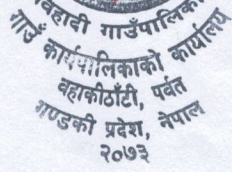 गाउँपालिका
गाउँ कार्यपालिकाको कार्यालय
वहाकीठाँटी, पर्वत
गण्डकी प्रदेश, नेपाल
२०७३